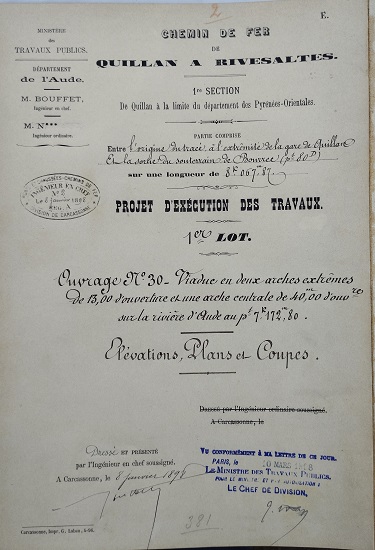 2
E.
MINISTÈRE
des
TRAVAUX PUBLICS.
DÉPARTEMENT
de l'Aude.
M. BOUFFET,
Ingénieur en chef.
M. N***
Ingénieur ordinaire.
CHEMIN DE FER
DE
QUILLAN A RIVESALTES.
1re SECTION
De Quillan à la limite du département des Pyrénées-Orientales.
PARTIE COMPRISE
Entre l'origine du tracé à l'extrémité de la gare de Quillan
Et la sortie du souterrain de
sur une longueur de 8k 067m 87.
INGÉNIEUR EN CHEF
DIVISION DE CARCASSONNE
PROJET D'EXÉCUTION DES TRAVAUX.
1er LOT.
Ouvrage N° 30 - Viaduc en deux arches extrêmes
de 13,00 d'ouverture et une arche centrale de 40m,00 d'ouvre
sur la rivière d'Aude au pt 7k 172m,80.
Élévations, Plans et Coupes.
DRESSÉ par l'Ingénieur ordinaire soussigné.
A Carcassonne, le
Dressé ET PRÉSENTÉ
par l'Ingénieur en chef soussigné.
A Carcassonne, le 8 janvier 1898
VU CONFORMÉMENT À MA LETTRE DE CE JOUR.
PARIS, le 10 MARS
LE MINISTRE DES TRAVAUX PUBLICS,
POUR LE MINISTRE ET PAR AUTORISATION :
LE CHEF DE DIVISION,
381